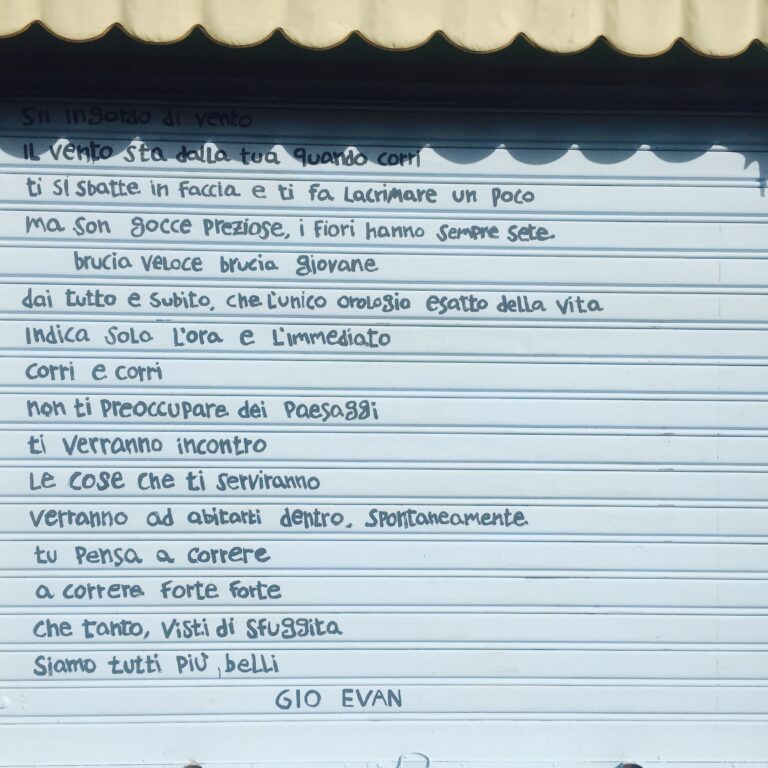 Sii ingordo di vento
il vento sta dalla tua quando corri
ti si sbatte in faccia e ti fa lacrimare un poco
ma son gocce preziose, i fiori hanno sempre sete.
brucia veloce brucia giovane
dai tutto e subito, che l'unico orologio esatto della vita
indica solo l'ora e l'immediato
corri e corri
non ti preoccupare dei paesaggi
ti verranno incontro
le cose che ti serviranno
verranno ad abitarti dentro. spontaneamente.
tu pensa a correre
a correre forte forte
che tanto, visti di sfuggita
siamo tutti più belli
GIO EVAN